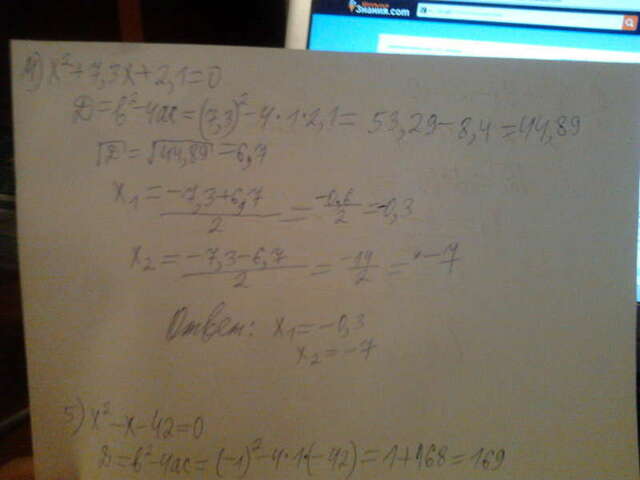 Знания.com
4) x²+7,3x+2,1=0
D=b²-4ac=(7,3)²-4·1·2,1=53,29-8,4=44,89
√D=√44,89=6,7
x₁=(-7,3+6,7)/2=(-0,6)/2=-0,3
x₂=(-7,3-6,7)/2=(-14)/2=-7
Ответ: x₁=-0,3
x₂=-7
5) x²-x-42=0
D=b²-4ac=(-1)²-4·1·(-42)=1+168=169